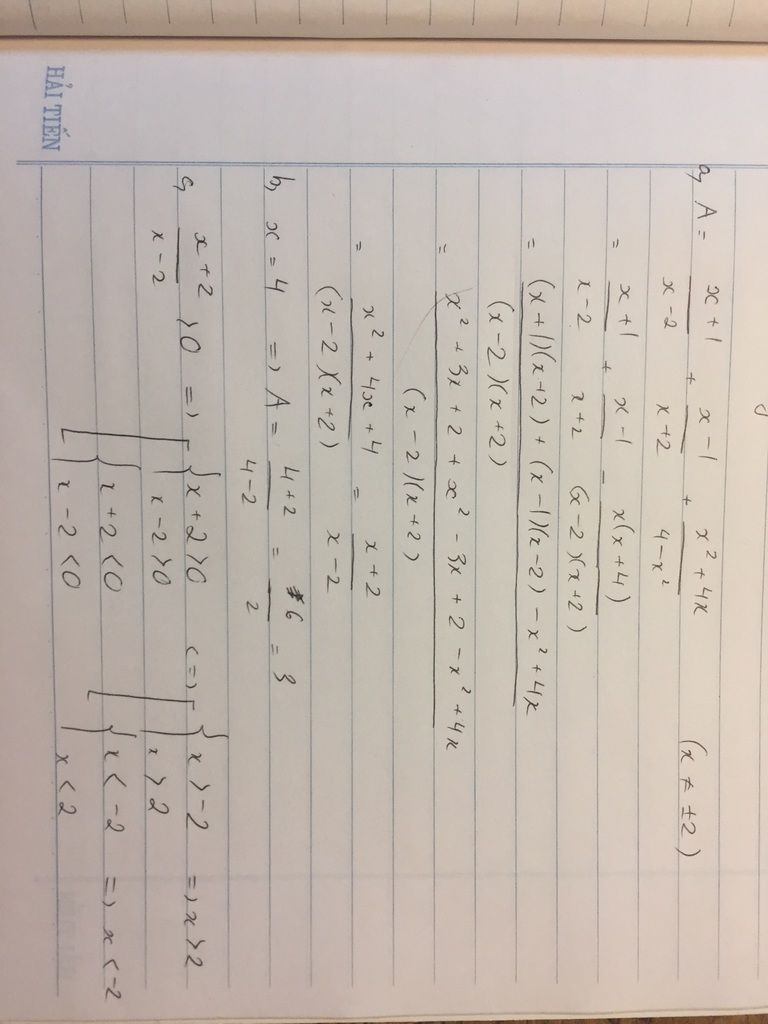 HẢI TIẾN
a, A = \frac{x+1}{x-2} + \frac{x-1}{x+2} + \frac{x^2+4x}{4-x^2} (x ≠ ±2)
= \frac{x+1}{x-2} + \frac{x-1}{x+2} - \frac{x(x+4)}{(x-2)(x+2)}
= \frac{(x+1)(x+2) + (x-1)(x-2) - x^2+4x}{(x-2)(x+2)}
= \frac{x^2+3x+2+x^2-3x+2-x^2+4x}{(x-2)(x+2)}
= \frac{x^2+4x+4}{(x-2)(x+2)} = \frac{x+2}{x-2}
b, x = 4 => A = \frac{4+2}{4-2} = \frac{6}{2} = 3
c, \frac{x+2}{x-2} > 0 => [ { x+2 > 0 <=> [ { x > -2 => x > 2
x-2 > 0 x > 2
{ x+2 < 0 { x < -2 => x < -2
x-2 < 0 x < 2